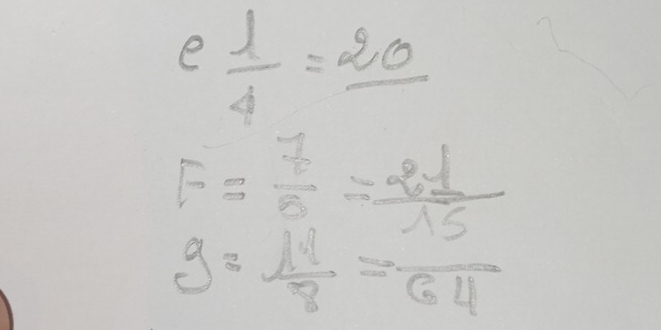 e 1/4 = 20/
F = 7/8 = 21/15
g = 11/8 = /64